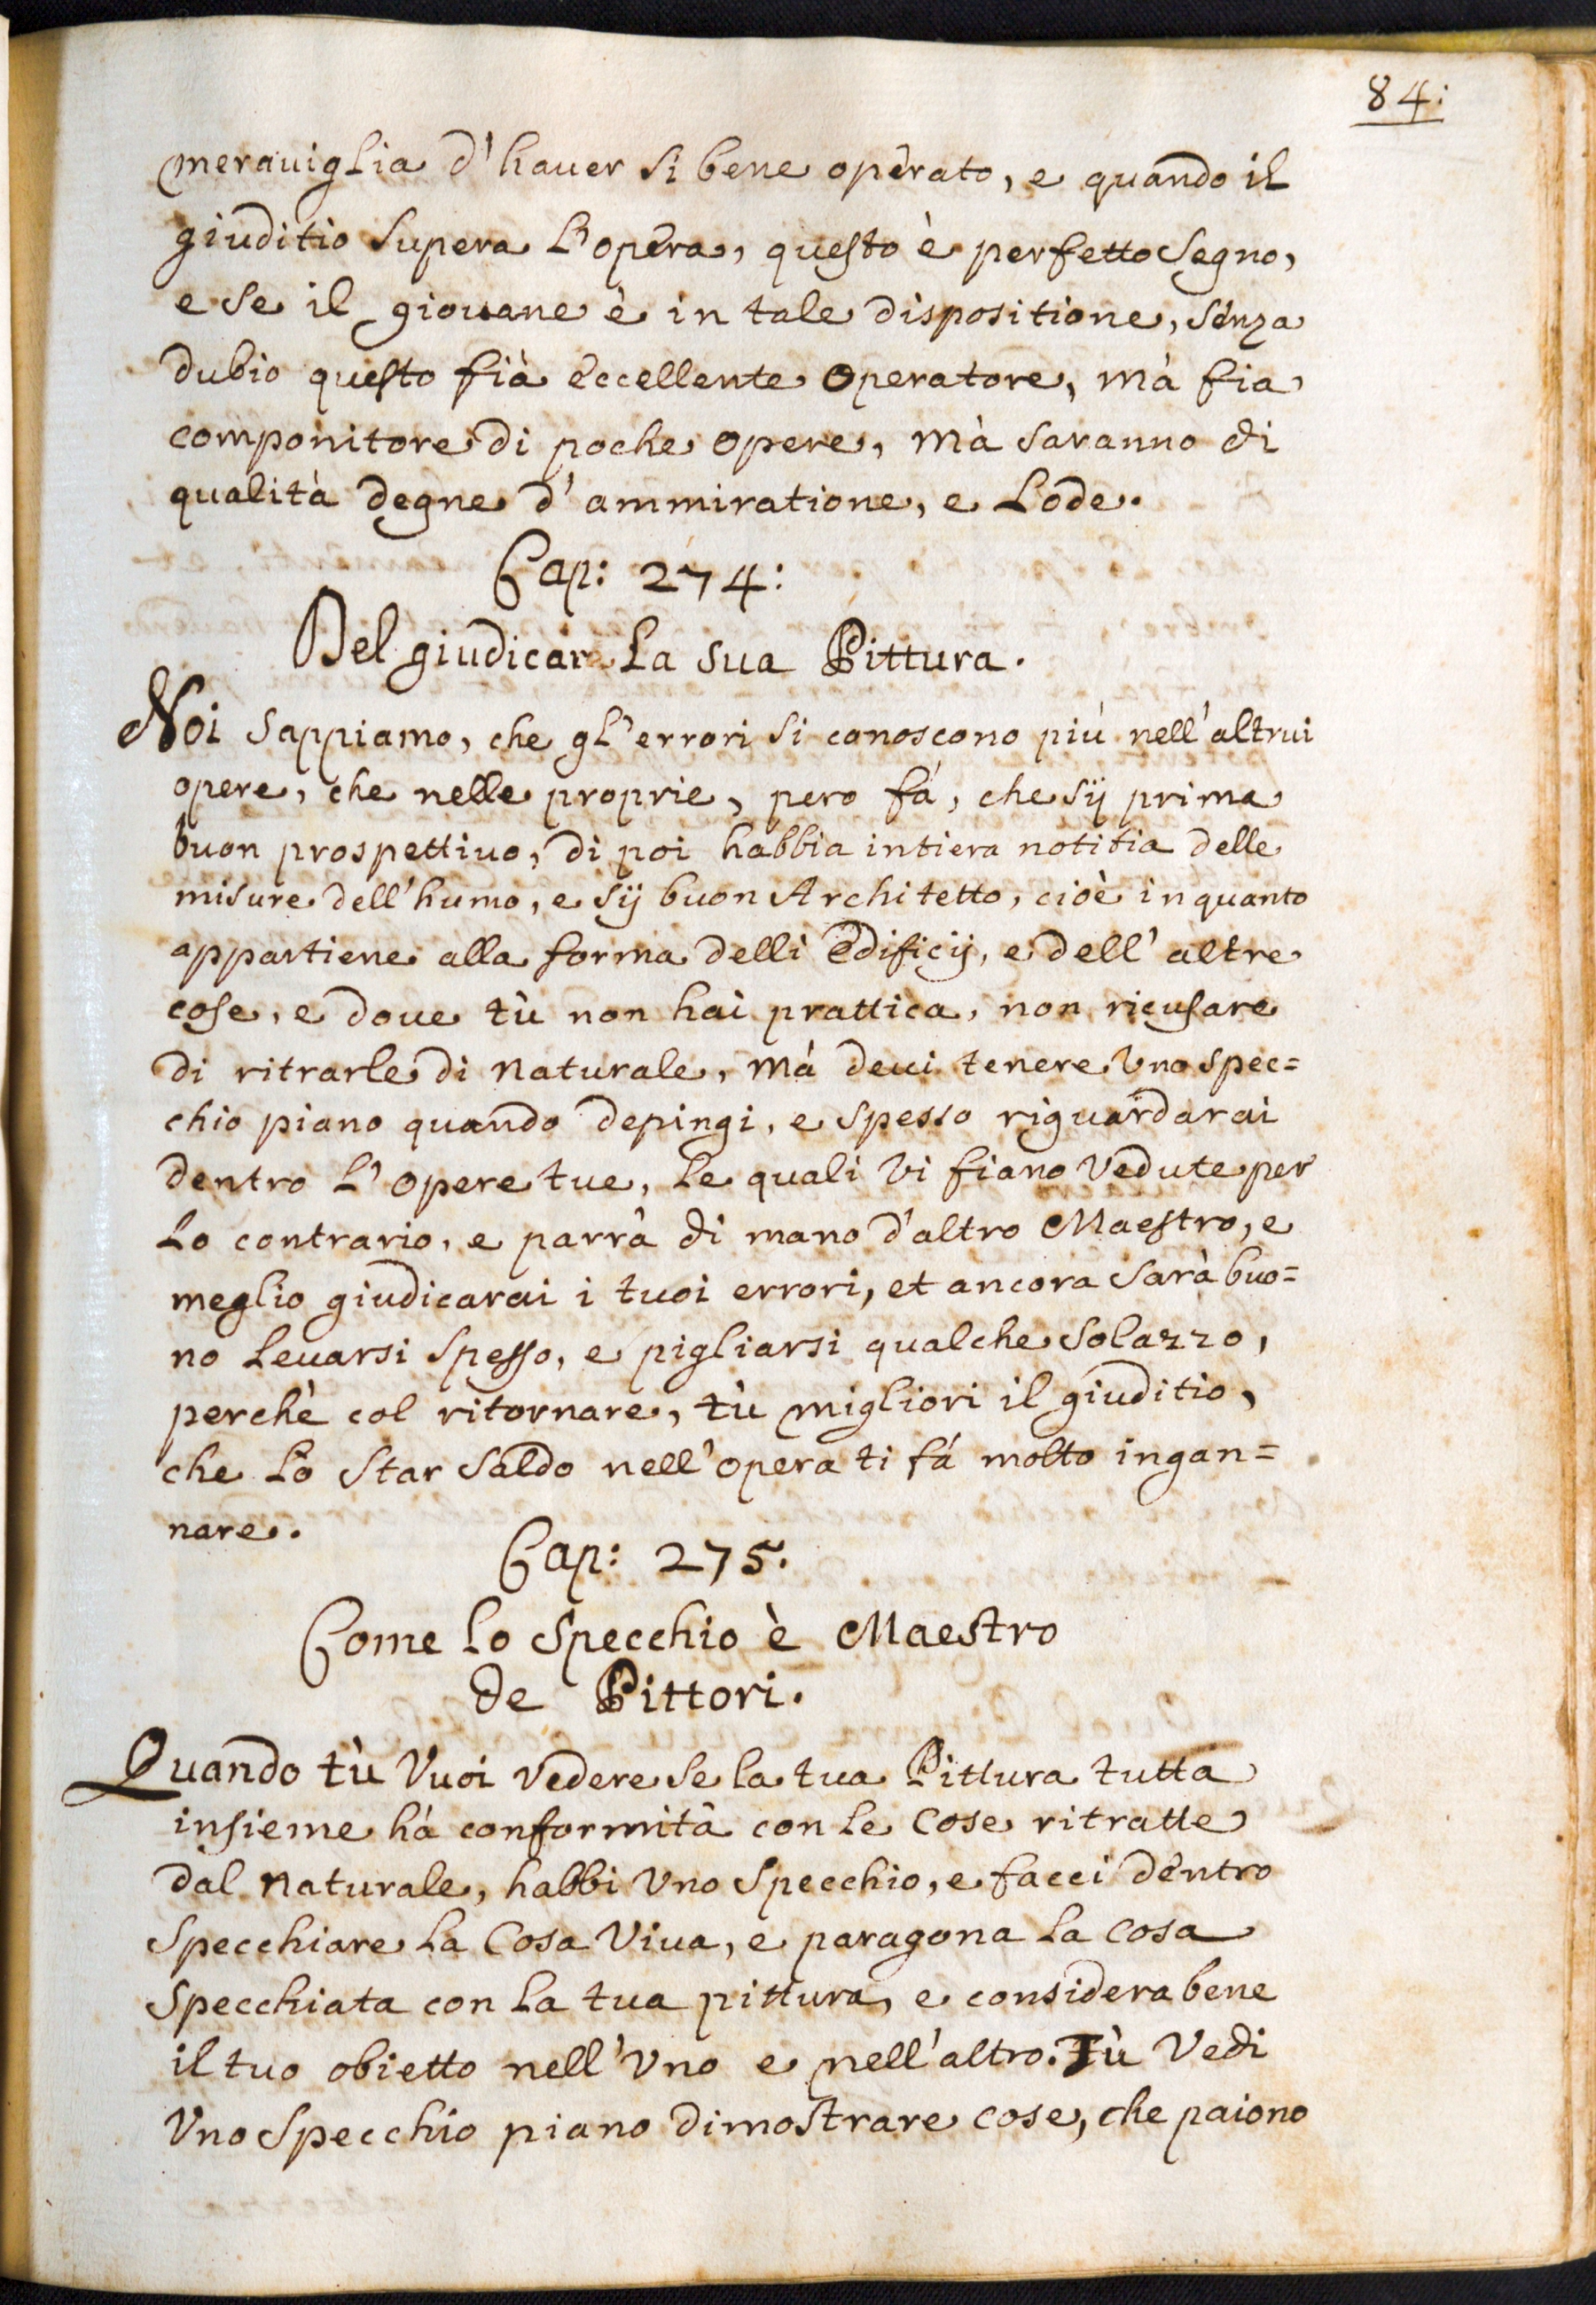 84:
merauiglia d'hauer si bene operato, e quando il
giuditio supera l'opera, questo è perfetto segno,
e se il giouane è in tale dispositione, senza
dubio questo fià eccellente operatore, mà fia
componitore di poche opere, mà saranno di
qualità degne d'ammiratione, e lode.
Cap: 274:
Del giudicar la sua Pittura.
Noi sappiamo, che gl'errori si conoscono più nell'altrui
opere, che nelle proprie, pero fà, che sij prima
buon prospettiuo, di poi habbia intiera notitia delle
misure dell'humo, e sij buon Architetto, cioè in quanto
appartiene alla forma delli edificij, e dell'altre
cose, e doue tù non hai prattica, non ricusare
di ritrarle di naturale, mà deui tenere Vno spec=
chio piano quando depingi, e spesso riguardarai
dentro l'opere tue, le quali vi fiano vedute per
lo contrario, e parrà di mano d'altro Maestro, e
meglio giudicarai i tuoi errori, et ancora sarà buo=
no leuarsi spesso, e pigliarsi qualche solazzo,
perchè col ritornare, tù migliori il giuditio,
che lo star saldo nell'opera ti fà molto ingan=
nare.
Cap: 275:
Come lo specchio è Maestro
de Pittori.
Quando tù Vuoi vedere se la tua Pittura tutta
insieme hà conformità con le cose ritratte
dal naturale, habbi Vno specchio, e facci dentro
specchiare la Cosa Viua, e paragona la cosa
specchiata con la tua pittura, e considera bene
il tuo obietto nell'Vno e nell'altro. Tù Vedi
Vno specchio piano dimostrare cose, che paiono